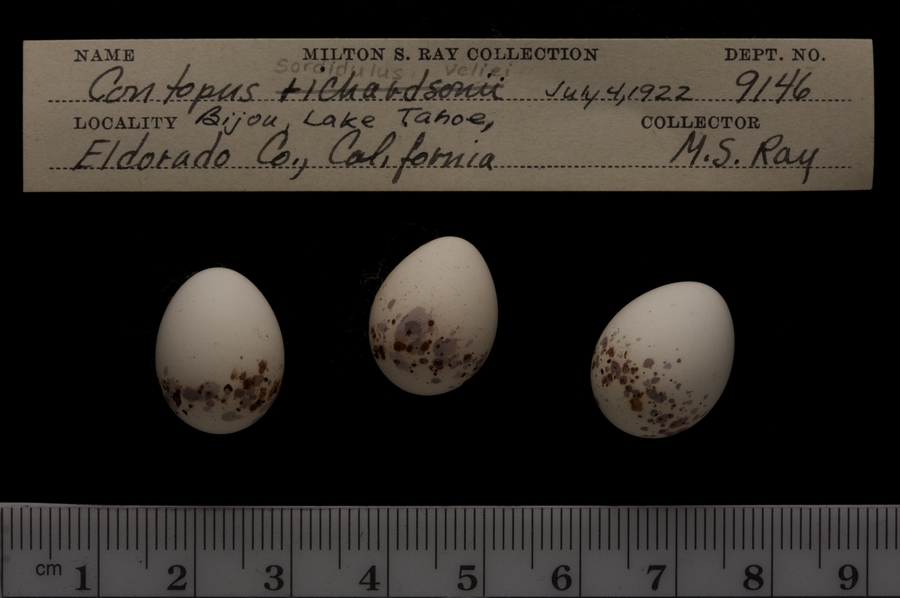 NAME MILTON S. RAY COLLECTION DEPT. NO.
Sordidulus Veliei
Contopus richardsonii July, 4, 1922 9146
LOCALITY Bijou, Lake Tahoe, COLLECTOR
Eldorado Co., California M.S. Ray
cm 1 2 3 4 5 6 7 8 9